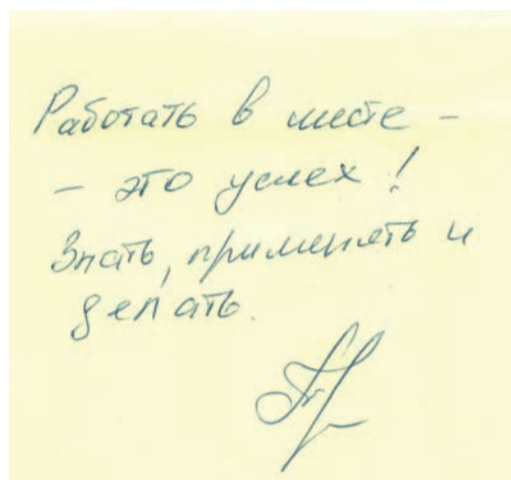 Работать в месте -
- это успех!
Знать, применять и
делать.